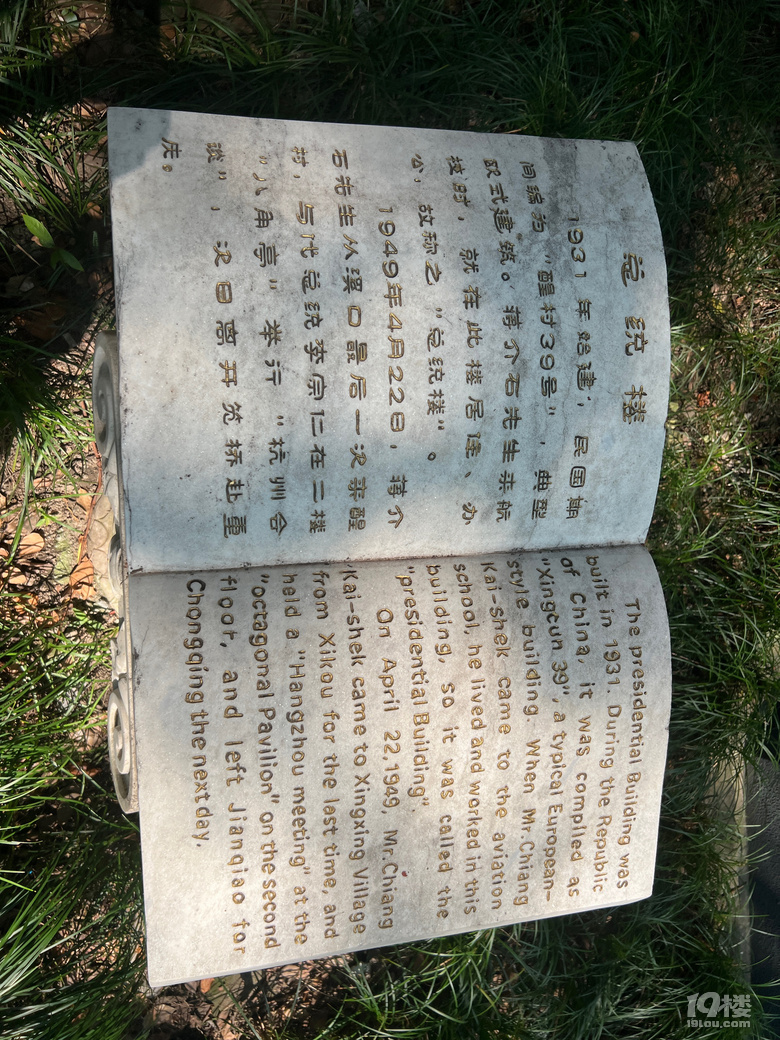 总统楼
1931年始建，民国期
间编为“醒村39号”，典型
欧式建筑。蒋介石先生来航
校时，就在此楼居住、办
公，故称之“总统楼”。
1949年4月22日，蒋介
石先生从溪口最后一次来醒
村，与代总统李宗仁在二楼
“八角亭”举行“杭州会
谈”，次日离开笕桥赴重
庆。
The presidential Building was
built in 1931. During the Republic
of China, it was complled as
"Xingcun 39", a typical European-
style building. When Mr.Chiang
Kai-shek came to the aviation
school, he lived and worked in this
building, so it was called the
"presidential Building".
On April 22,1949, Mr.Chiang
Kai-shek came to Xingxing Village
from Xikou for the last time, and
held a "Hangzhou meeting" at the
"octagonal Pavilion" on the second
floor, and left Jianqiao for
Chongqing the next day.
19楼
19lou.com